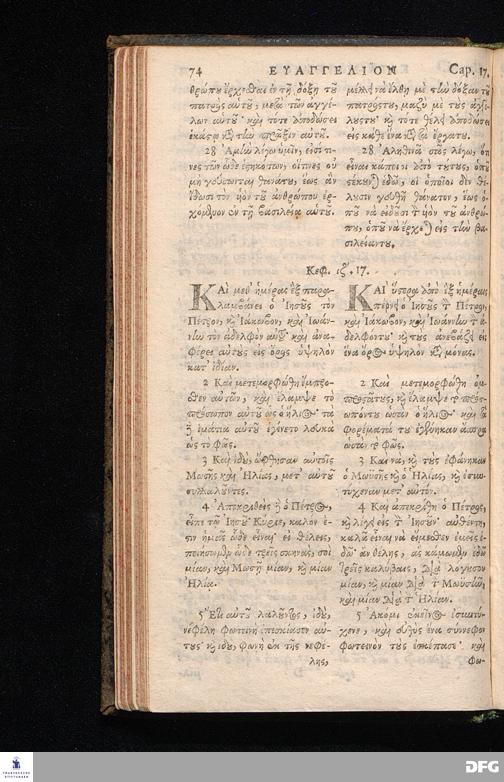 74 ΕΥΑΓΓΕΛΙΟΝ Cap. 17.
θρώπου ἔρχεσθαι ἐν τῇ δόξῃ τοῦ
πατρὸς αὑτοῦ, μετὰ τῶν ἀγγέ-
λων αὑτοῦ· καὶ τότε ἀποδώσει
ἑκάστῳ κατὰ τὴν πρᾶξιν αὑτοῦ.
28 Ἀμὴν λέγω ὑμῖν, εἰσί τι-
νες τῶν ὧδε ἑστηκότων, οἵτινες οὐ
μὴ γεύσωνται θανάτου, ἕως ἂν
ἴδωσι τὸν υἱὸν τοῦ ἀνθρώπου ἐρ-
χόμενον ἐν τῇ βασιλείᾳ αὑτοῦ.
μέλλει νὰ ἔλθῃ μὲ τὴν δόξαν τοῦ
πατρός του, μαζὺ μὲ τοὺς ἀγγέ-
λους του· καὶ τότε θέλει ἀποδώσει
εἰς κάθε ἕνα κατὰ τὰ ἔργα του.
28 Ἀληθινὰ σᾶς λέγω, ὅτι
εἶναι κάποιοι ἀπὸ τούτους, ὁποῦ
στέκουνται ἐδῶ, οἱ ὁποῖοι δὲν θέ-
λουσιν γευθῇ θάνατον, ἕως ὁ-
ποῦ νὰ εἰδοῦσι τὸν υἱὸν τοῦ ἀνθρώ-
που, ὁποῦ νὰ ἔρχεται εἰς τὴν βα-
σιλείαν του.
Κεφ. ιζʹ. 17.
ΚΑΙ μεθ' ἡμέρας ἓξ παρα-
λαμβάνει ὁ Ἰησοῦς τὸν
Πέτρον, καὶ Ἰάκωβον, καὶ Ἰωάν-
νην τὸν ἀδελφὸν αὐτοῦ· καὶ ἀνα-
φέρει αὐτοὺς εἰς ὄρος ὑψηλὸν
κατ' ἰδίαν.
2 Καὶ μετεμορφώθη ἔμπρο-
σθεν αὐτῶν, καὶ ἔλαμψε τὸ
πρόσωπον αὑτοῦ ὡς ὁ ἥλιος· τὰ
δὲ ἱμάτια αὑτοῦ ἐγένετο λευκὰ
ὡς τὸ φῶς.
3 Καὶ ἰδού, ὤφθησαν αὐτοῖς
Μωσῆς καὶ Ἠλίας, μετ' αὐτοῦ
συλλαλοῦντες.
4 Ἀποκριθεὶς δὲ ὁ Πέτρος,
εἶπε τῷ Ἰησοῦ· Κύριε, καλόν ἐ-
στιν ἡμᾶς ὧδε εἶναι· εἰ θέλεις,
ποιήσωμεν ὧδε τρεῖς σκηνάς, σοὶ
μίαν, καὶ Μωσῇ μίαν, καὶ μίαν
Ἠλίᾳ.
5 Ἔτι αὐτοῦ λαλοῦντος, ἰδού,
νεφέλη φωτεινὴ ἐπεσκίασεν αὐ-
τούς· καὶ ἰδού, φωνὴ ἐκ τῆς νεφέ-
λης,
ΚΑΙ ὕστερα ἀπὸ ἓξ ἡμέραις
πέρνει ὁ Ἰησοῦς τὸν Πέτρον,
καὶ Ἰάκωβον, καὶ Ἰωάννην τὸν ἀ-
δελφόν του· καὶ τοὺς ἀνεβάζει εἰς
ἕνα ὄρος ὑψηλὸν καὶ μόνας.
2 Καὶ μετεμορφώθη ὀμ-
προστά τους, καὶ ἔλαμψε τὸ πρόσ-
ωπόν του ὡσὰν ὁ ἥλιος· καὶ τὰ
φορέματά του ἐγίνηκαν ἄσπρα
ὡσὰν τὸ φῶς.
3 Καὶ νά, καὶ τοὺς ἐφάνηκαν
ὁ Μωϋσῆς καὶ ὁ Ἠλίας, καὶ ἐσυν-
τύχεναν μετ' αὐτόν.
4 Καὶ ἀπεκρίθη ὁ Πέτρος,
καὶ λέγει εἰς τὸν Ἰησοῦν· αὐθέντη,
καλὰ εἶναι νὰ εἴμεσθεν ἐμεῖς ἐ-
δῶ· ἂν θέλῃς, ἂς κάμωμεν ἐδῶ
τρεῖς καλύβαις, διὰ λόγου σου
μίαν, καὶ μίαν διὰ τὸν Μωϋσῆν,
καὶ μίαν διὰ τὸν Ἠλίαν.
5 Ἀκόμι ἐκεῖνος ἐσυντύ-
χενε, καὶ εὐθὺς ἕνα σύννεφον
φωτεινὸν τοὺς ἐπέπασε· καὶ
φω-
FRANCKESCHE STIFTUNGEN
DFG